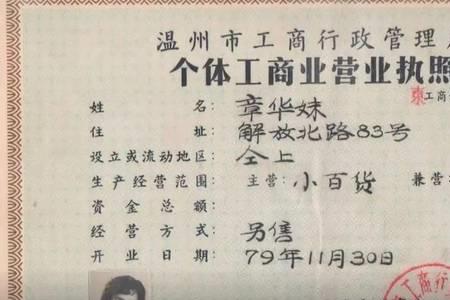 温州市工商行政管理局
个体工商业营业执照
东工商
姓名：章华妹
住址：解放北路83号
设立或流动地区：仝上
生产经营范围：主营：小百货 兼营
资金总额：
经营方式：另售
开业日期：79年11月30日
工商行